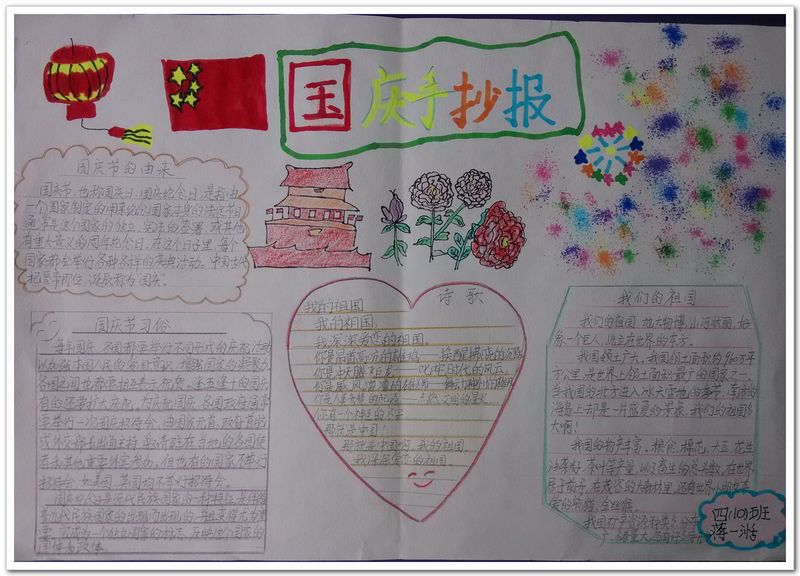 国庆手抄报
国庆节的由来
国庆节,也称国庆日、国庆纪念日,是指由
一个国家制定的用来纪念国家本身的法定节日
通常是这个国家的独立、宪法的签署,或其他
有重大意义的周年纪念日。在这个日子里,每个
国家都会举行各种各样的庆祝活动。中国古代
把皇帝即位、诞辰称为"国庆"。
国庆节习俗
每年国庆,各国都要举行不同形式的庆祝活动
以加强本国人民的爱国意识,增强国家的凝聚力
各国之间也都要相互表示祝贺。逢五逢十的国庆
有的还要扩大庆祝。为庆祝国庆,各国政府通常
要举行一次国庆招待会,由国家元首、政府首脑
或外交部长出面主持,邀请驻在当地的各国使
节和其他重要外宾参加。但也有的国家不举行
招待会,如美国、英国均不举行招待会。
国庆纪念日是近代民族国家的一种特征,是伴随
着近代民族国家的出现而出现的,并且变得尤为重
要。它成为一个独立国家的标志,反映这个国家的
国体和政体。
诗歌
我的祖国
我的祖国,
我深深爱恋的祖国。
你是昂首高亢的雄鸡——唤醒拂晓的沉默
你是冲天腾飞的巨龙——叱咤时代的风云
你是威风凛凛的雄狮——舞动神州的雄风
你是人类智慧的起源——点燃文明的星火
你有一个神圣的名字
那就是中国!
那就是中国啊,我的祖国。
我深深爱恋的祖国。
我们的祖国
我们的祖国,地大物博,山河壮丽,好
象一个巨人,屹立在世界的东方。
我国领土广大,我国领土面积约960万平
方公里,是世界上领土面积最广的国家之一。
当我国的北方进入冰天雪地的季节,南部的
海岛上却是一片盛夏的景象,我们的祖国多
大啊!
我国的物产丰富,粮食、棉花、大豆、花生
四(10)班
蒋一浩